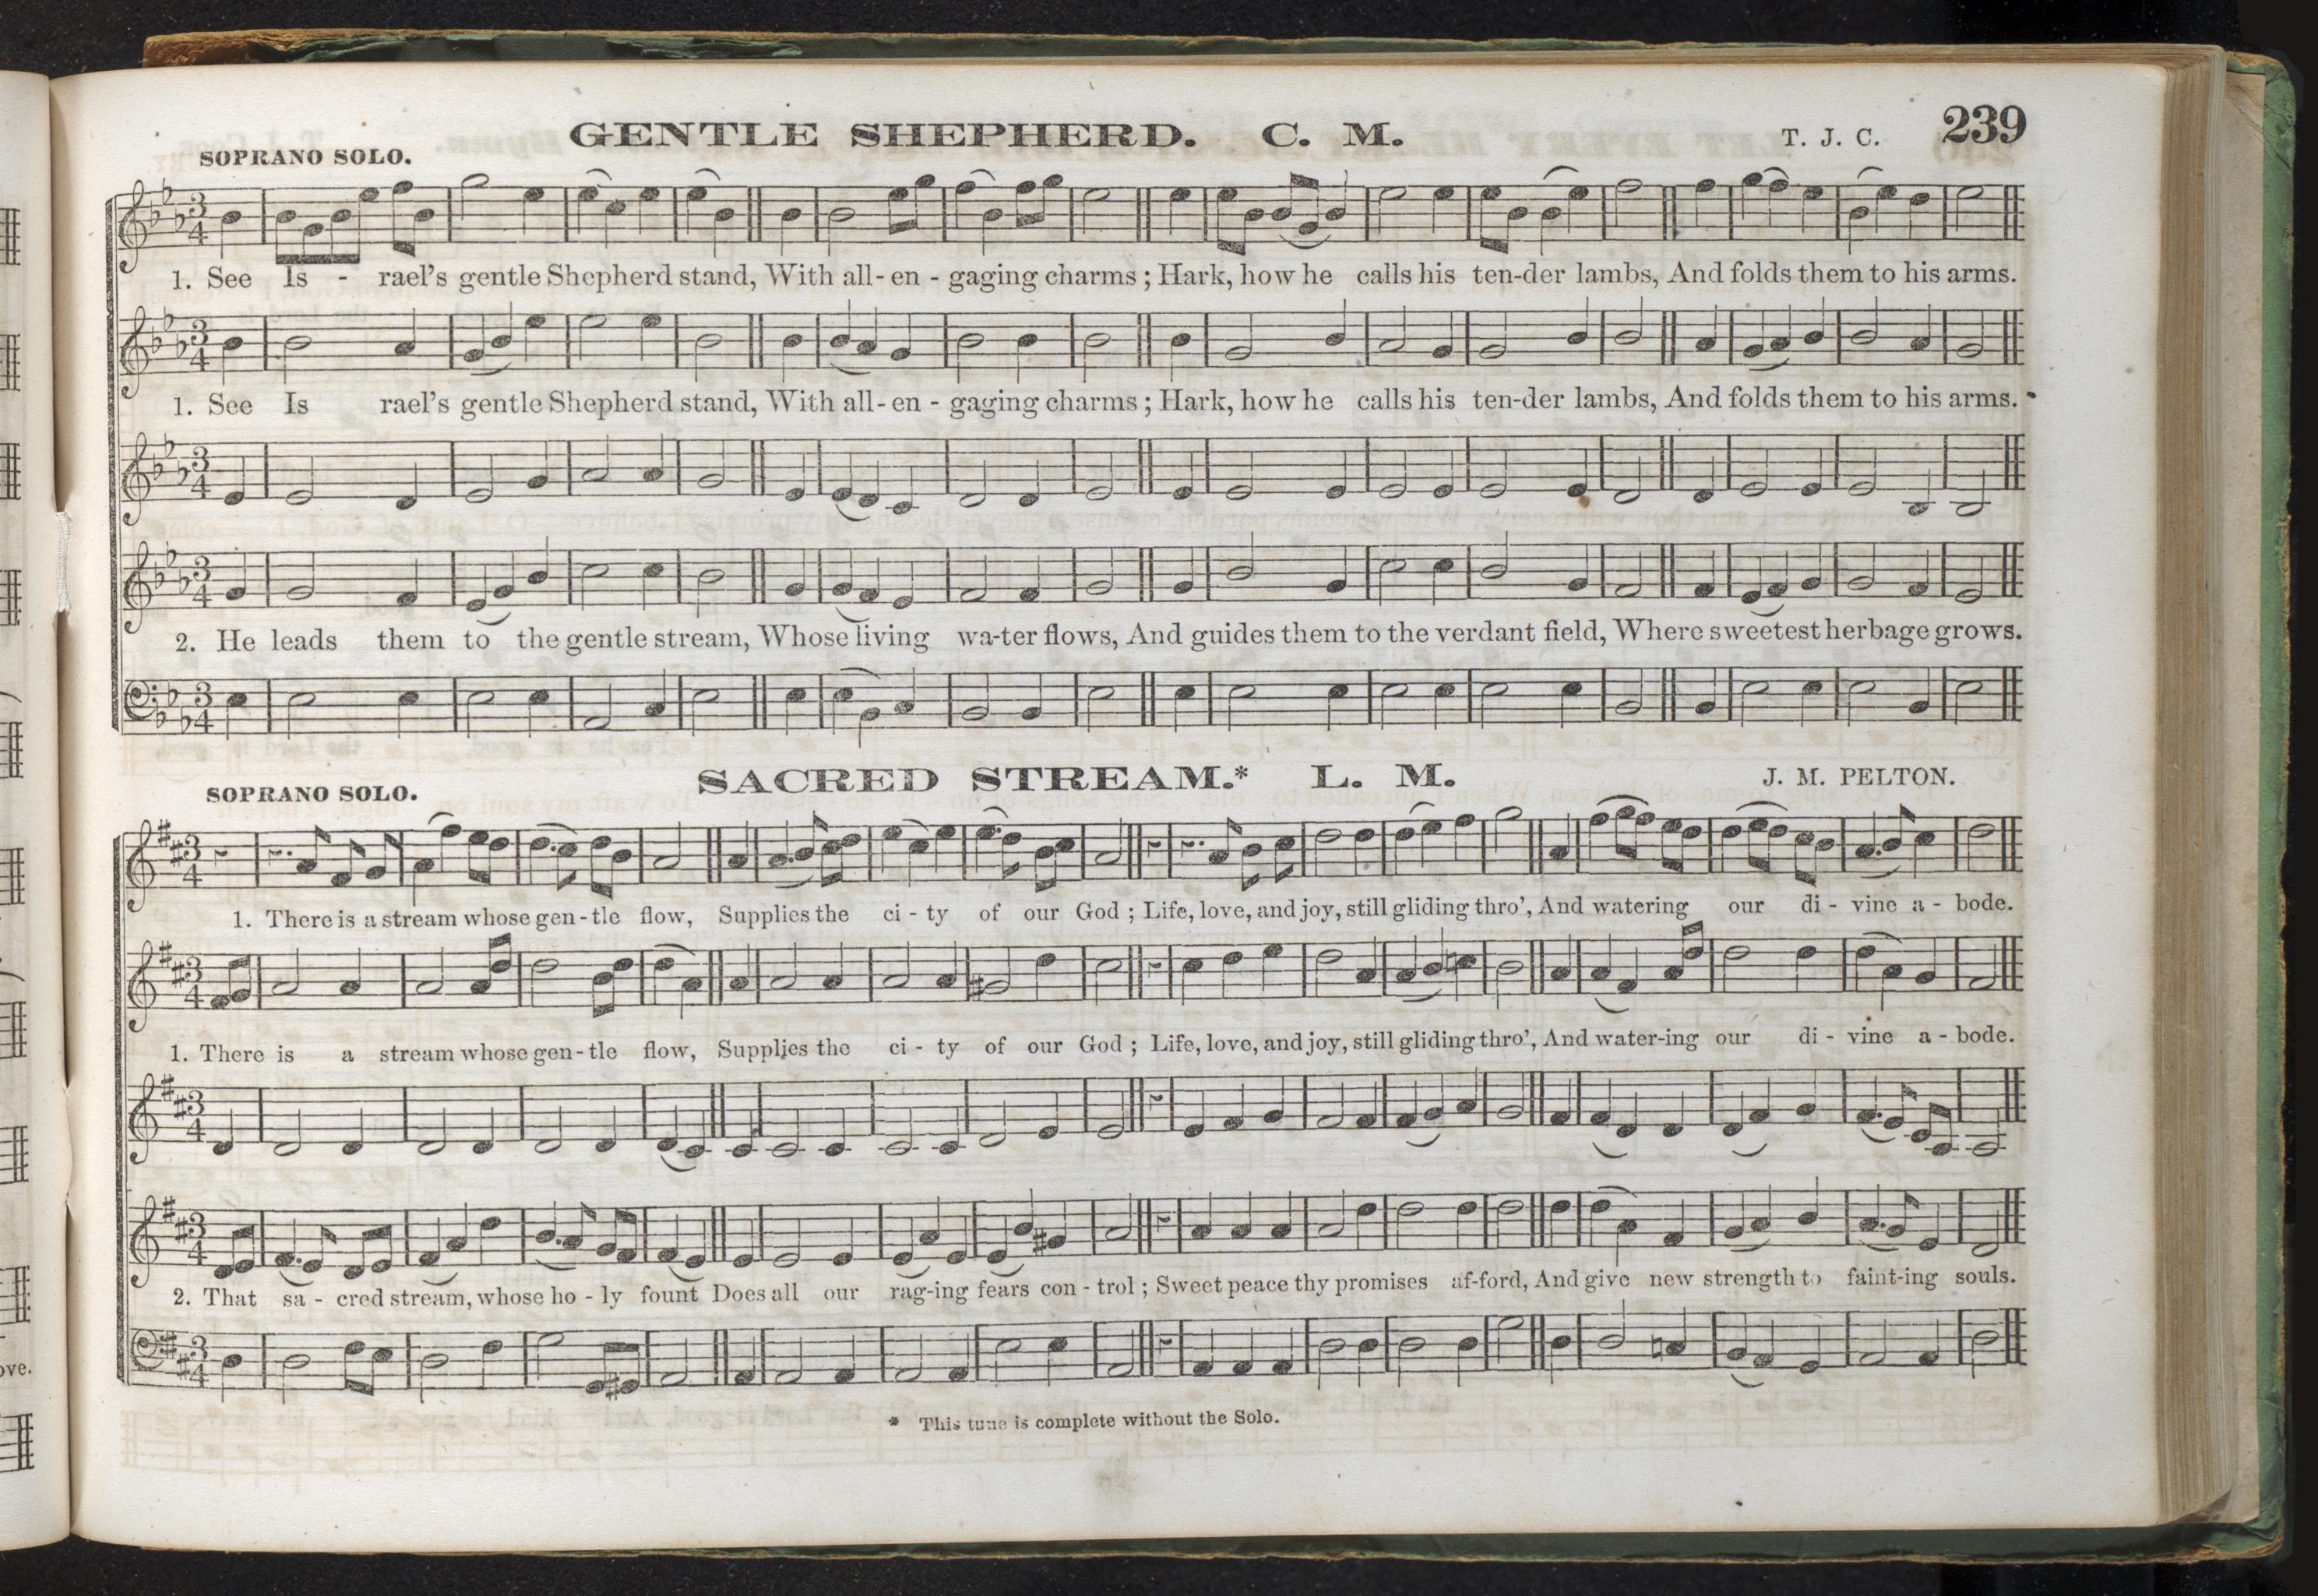 GENTLE SHEPHERD. C. M.
T. J. C.
239
SOPRANO SOLO.
1. See Is - rael's gentle Shepherd stand, With all-en - gaging charms; Hark, how he calls his ten-der lambs, And folds them to his arms.
1. See Is rael's gentle Shepherd stand, With all-en - gaging charms; Hark, how he calls his ten-der lambs, And folds them to his arms.
2. He leads them to the gentle stream, Whose living wa-ter flows, And guides them to the verdant field, Where sweetest herbage grows.
SACRED STREAM.* L. M.
J. M. PELTON.
SOPRANO SOLO.
1. There is a stream whose gen-tle flow, Supplies the ci - ty of our God; Life, love, and joy, still gliding thro', And watering our di - vine a - bode.
1. There is a stream whose gen-tle flow, Supplies the ci - ty of our God; Life, love, and joy, still gliding thro', And water-ing our di - vine a - bode.
2. That sa - cred stream, whose ho - ly fount Does all our rag-ing fears con - trol; Sweet peace thy promises af-ford, And give new strength to faint-ing souls.
* This tune is complete without the Solo.
ove.